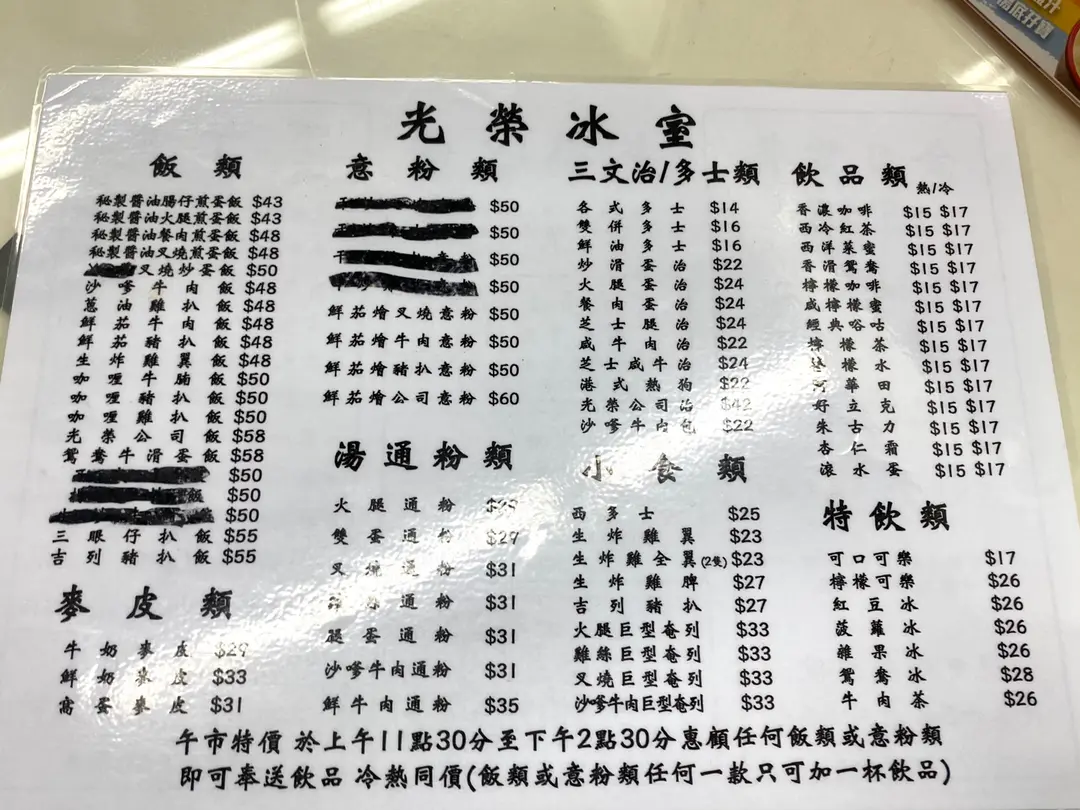 光榮冰室
飯類
秘製醬油腸仔煎蛋飯 $43
秘製醬油火腿煎蛋飯 $43
秘製醬油餐肉煎蛋飯 $48
秘製醬油叉燒煎蛋飯 $48
叉燒炒蛋飯 $50
沙嗲牛肉飯 $48
蔥油雞扒飯 $48
鮮茄牛肉飯 $48
鮮茄豬扒飯 $48
生炸雞翼飯 $48
咖喱牛腩飯 $50
咖喱豬扒飯 $50
咖喱雞扒飯 $50
光榮公司飯 $58
鴛鴦牛滑蛋飯 $58
$50
飯 $50
$50
三眼仔扒飯 $55
吉列豬扒飯 $55
麥皮類
牛奶麥皮 $29
鮮奶麥皮 $33
窩蛋麥皮 $31
意粉類
$50
$50
$50
$50
鮮茄燴叉燒意粉 $50
鮮茄燴牛肉意粉 $50
鮮茄燴豬扒意粉 $50
鮮茄燴公司意粉 $60
湯通粉類
火腿通粉
雙蛋通粉 $29
叉燒通粉 $31
通粉 $31
腿蛋通粉 $31
沙嗲牛肉通粉 $31
鮮牛肉通粉 $35
三文治/多士類
各式多士 $14
雙併多士 $16
鮮油多士 $16
炒滑蛋治 $22
火腿蛋治 $24
餐肉蛋治 $24
芝士腿治 $24
咸牛肉治 $22
芝士咸牛治 $24
港式熱狗 $22
光榮公司治 $42
沙嗲牛肉包 $22
小食類
西多士 $25
生炸雞翼 $23
生炸雞全翼(2隻) $23
生炸雞脾 $27
吉列豬扒 $27
火腿巨型奄列 $33
雞絲巨型奄列 $33
叉燒巨型奄列 $33
沙嗲牛肉巨型奄列 $33
飲品類 熱/冷
香濃咖啡 $15 $17
西冷紅茶 $15 $17
西洋菜蜜 $15 $17
香滑鴛鴦 $15 $17
檸檬咖啡 $15 $17
咸檸檬蜜 $15 $17
經典唂咕 $15 $17
檸檬茶 $15 $17
檸檬水 $15 $17
阿華田 $15 $17
好立克 $15 $17
朱古力 $15 $17
杏仁霜 $15 $17
滾水蛋 $15 $17
特飲類
可口可樂 $17
檸檬可樂 $26
紅豆冰 $26
菠蘿冰 $26
雜果冰 $26
鴛鴦冰 $28
牛肉茶 $26
午市特價 於上午11點30分至下午2點30分惠顧任何飯類或意粉類
即可奉送飲品 冷熱同價(飯類或意粉類任何一款只可加一杯飲品)